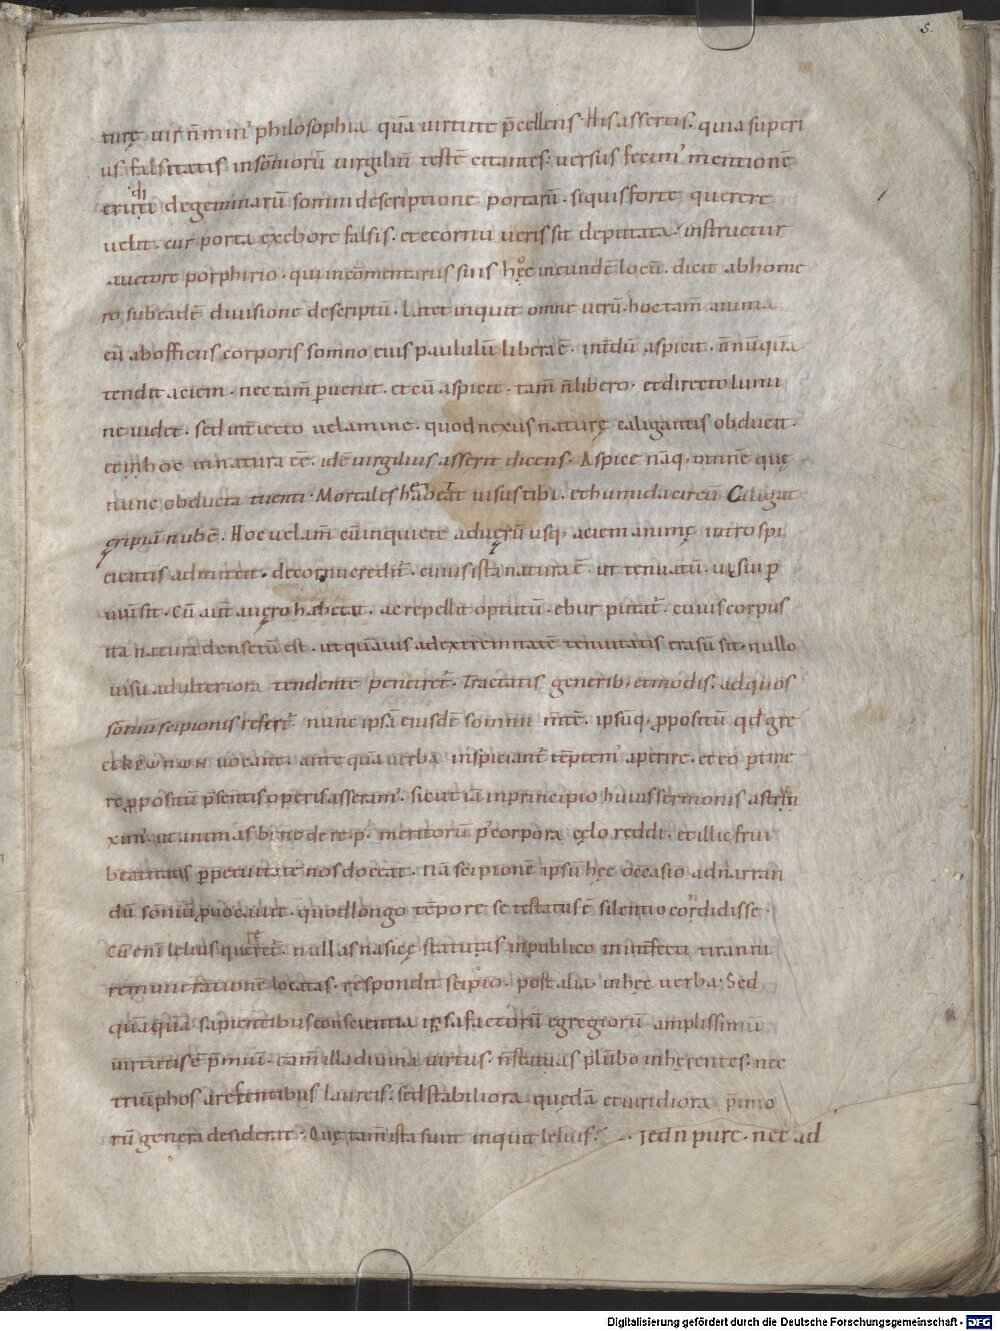 5.
turę vir n̄ minꝰ philosophia quā virtute p̄cellens. His assertis. quia superi
us. falsitatis insōniorū virgiliū testē citantes. versus fecimꝰ mentionē
eruti de geminarū somni descriptione portarū. siquis forte querere
velit. cur porta ex ebore falsis. et e cornu veris sit deputata. instructur
auctore porphirio. qui in cōmentariis suis hęc in eundē locū. dicit ab home
ro sub eadē divisione descriptū. Latet inquit omne verū. hoc tam̄ anima
cū ab officiis corporis somno eius paululū libera ē. int̄dū aspicit. n̄nūquā
tendit aciem. nec tam̄ ꝑvenit. et cū aspicit. tam̄ n̄ libero. et directo lumi
ne videt. sed int̄iecto velamine. quod nexus naturę caligantis obducit.
et inhoc in natura ēē. idē virgilius asserit dicens. Aspice nāq, omnē quę
nunc obducta tuenti. Mortales habeat visus tibi. et humida circū Caligat
eripiā nubē. Hoc velam̄ cū in quiete ad verū usq, aciem animę introspi
cientis admittit. de cornu creditᷣ. cuius ista natura ē. ut tenuatū. visui ꝑ
viū sit. Cū aut̄ a vero hebetat. ac repellit optutū. ebur putatᷣ. cuius corpus
ita natura densetū est. ut quāvis ad extremitatē tenuitatis erasū sit. nullo
visu ad ulteriora tendente penetretᷣ. Tractatis generib; et modis. ad quos
sōniū scipionis refertᷣ nunc ipsā eiusdē somnii m̄tē. ipsūq, ꝓpositū qd gre
ci vocant. ante quā verba inspiciantᷣ tēptemꝰ aperire. et eo ꝑtine
re ꝓpositū p̄sentis operis asseramꝰ. sicut iā in principio huius sermonis astrin
ximꝰ. ut animas bene de re. p. meritorū pꝰ corpora cęlo reddi. et illic frui
beatitatis ꝑpetuitate nos doceat. Nā scipionē ipsū hęc occasio ad narran
dū sōniū ꝓvocavit. quod longo tēpore se testatus ē silentio condidisse.
Cū eni lelius quereretᷣ. nullas nasicę statuas in publico in int̄fecti tiranni
remunerationē locatas. respondit scipio. post alia. in hęc verba. Sed
quāquā sapientibus conscientia ipsa factorū egregiorū amplissimū
virtutis ē p̄miū. tam̄ illa divina virtus. n̄ statuas plūbo inherentes. nec
triūphos arescentibus laureis. sed stabiliora quędā et viridiora p̄mio
rū genera desiderat. Quę tam̄ ista sunt inquit lelius? nec ad
Digitalisierung gefördert durch die Deutsche Forschungsgemeinschaft - DFG